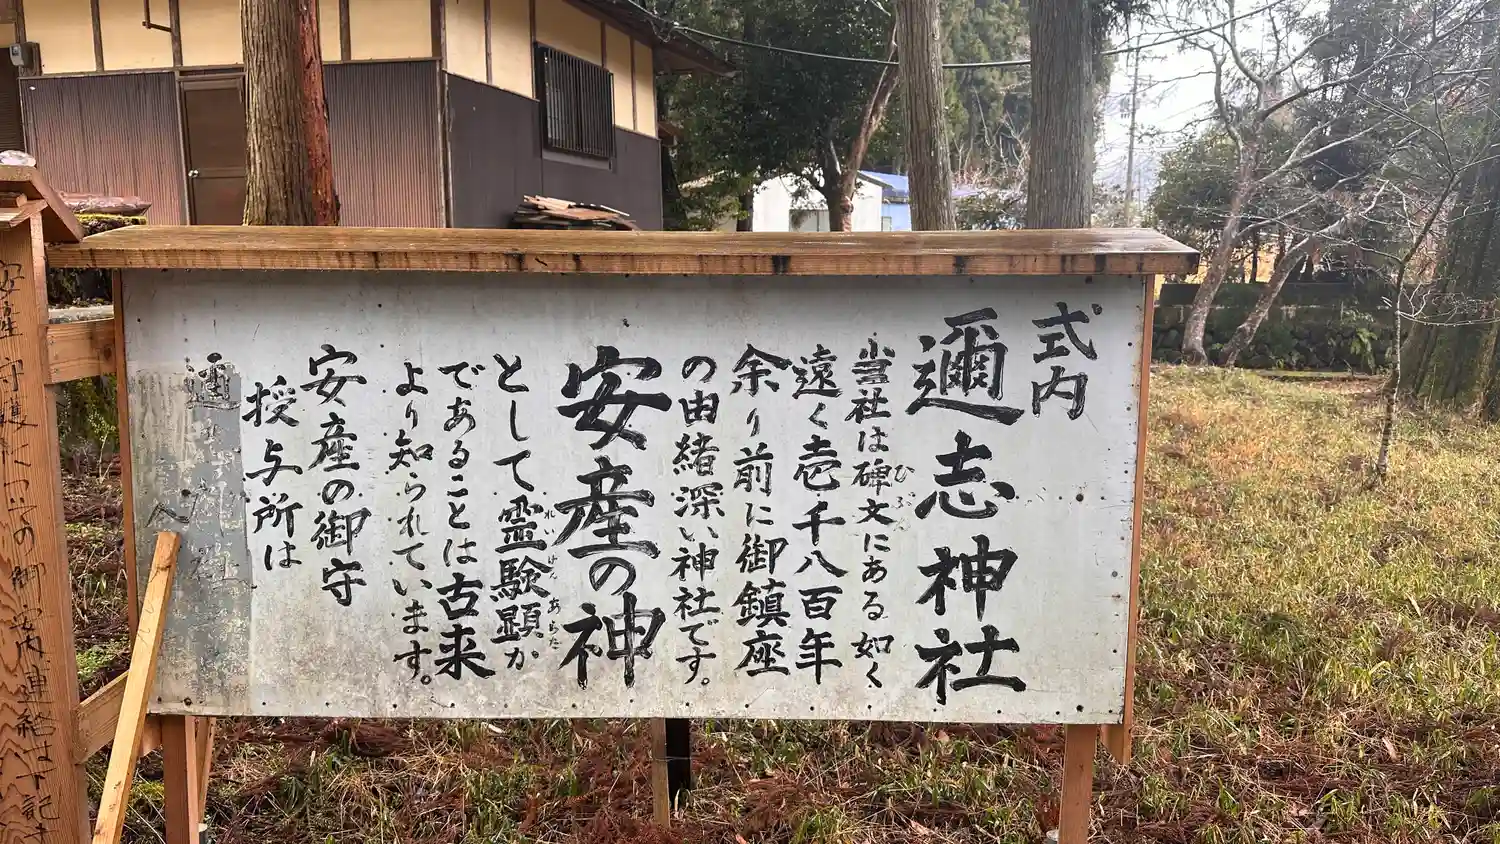 式内
邇志神社
当社は碑文にある如く
ひぶん
遠く壱千八百年
余り前に御鎮座
の由緒深い神社です。
安産の神
として霊験顕か
れいげんあらた
であることは古来
より知られています。
安産の御守
授与所は
へ
安産守護についての御案内連絡は下記ま